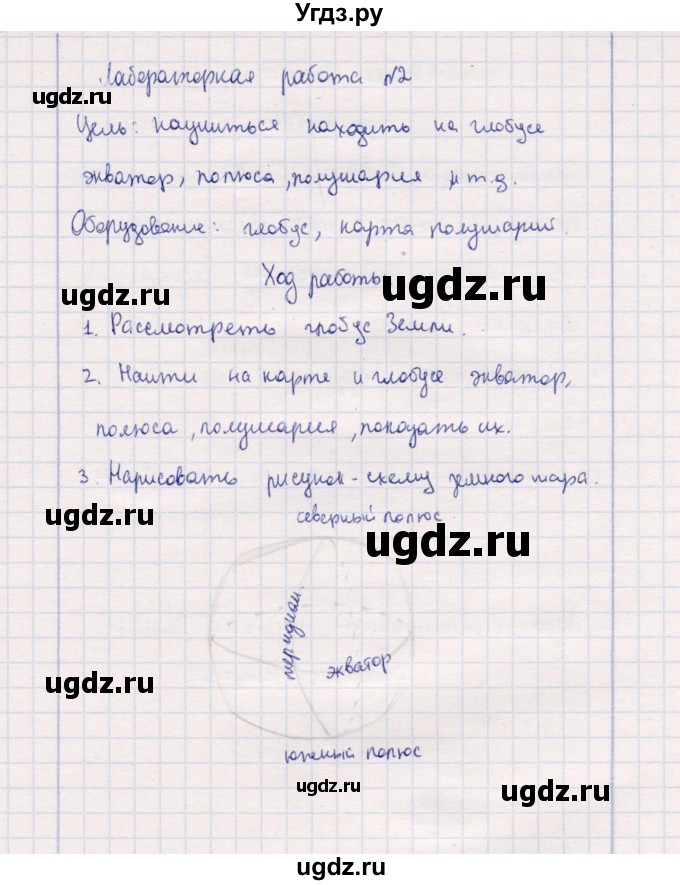 Угдз.ру
Лабораторная работа №2
ugdz.ru
ugdz.ru
Цель: научиться находить на глобусе
экватор, полюса, полушария и т.д.
Оборудование: глобус, карта полушарий.
Ход работы
ugdz.ru
ugdz.ru
1. Рассмотреть глобус Земли.
2. Найти на карте и глобусе экватор,
полюса, полушария, показать их.
ugdz.ru
ugdz.ru
3. Нарисовать рисунок-схему земного шара.
северный полюс
ugdz.ru
ugdz.ru
меридиан
экватор
ugdz.ru
южный полюс
ugdz.ru
ugdz.ru
ugdz.ru